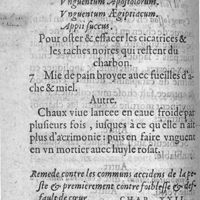 Vnguentum Apostolorum.
Vnguentum Ægiptiacum.
Appii succus.
Pour oster & effacer les cicatrices &
les taches noires qui restent du
charbon.
7 Mie de pain broyee auec fueilles d'a-
che & miel.
Autre.
Chaux viue lancee en eaue froide par
plusieurs fois, iusques à ce qu'elle n'ait
plus d'acrimonie: puis en faire vnguent
en vn mortier auec huyle rosat.
Remede contre les communs accidens de la pe-
ste & premierement contre foiblesse & def-
faulte de cœur. CHAP. XXII.